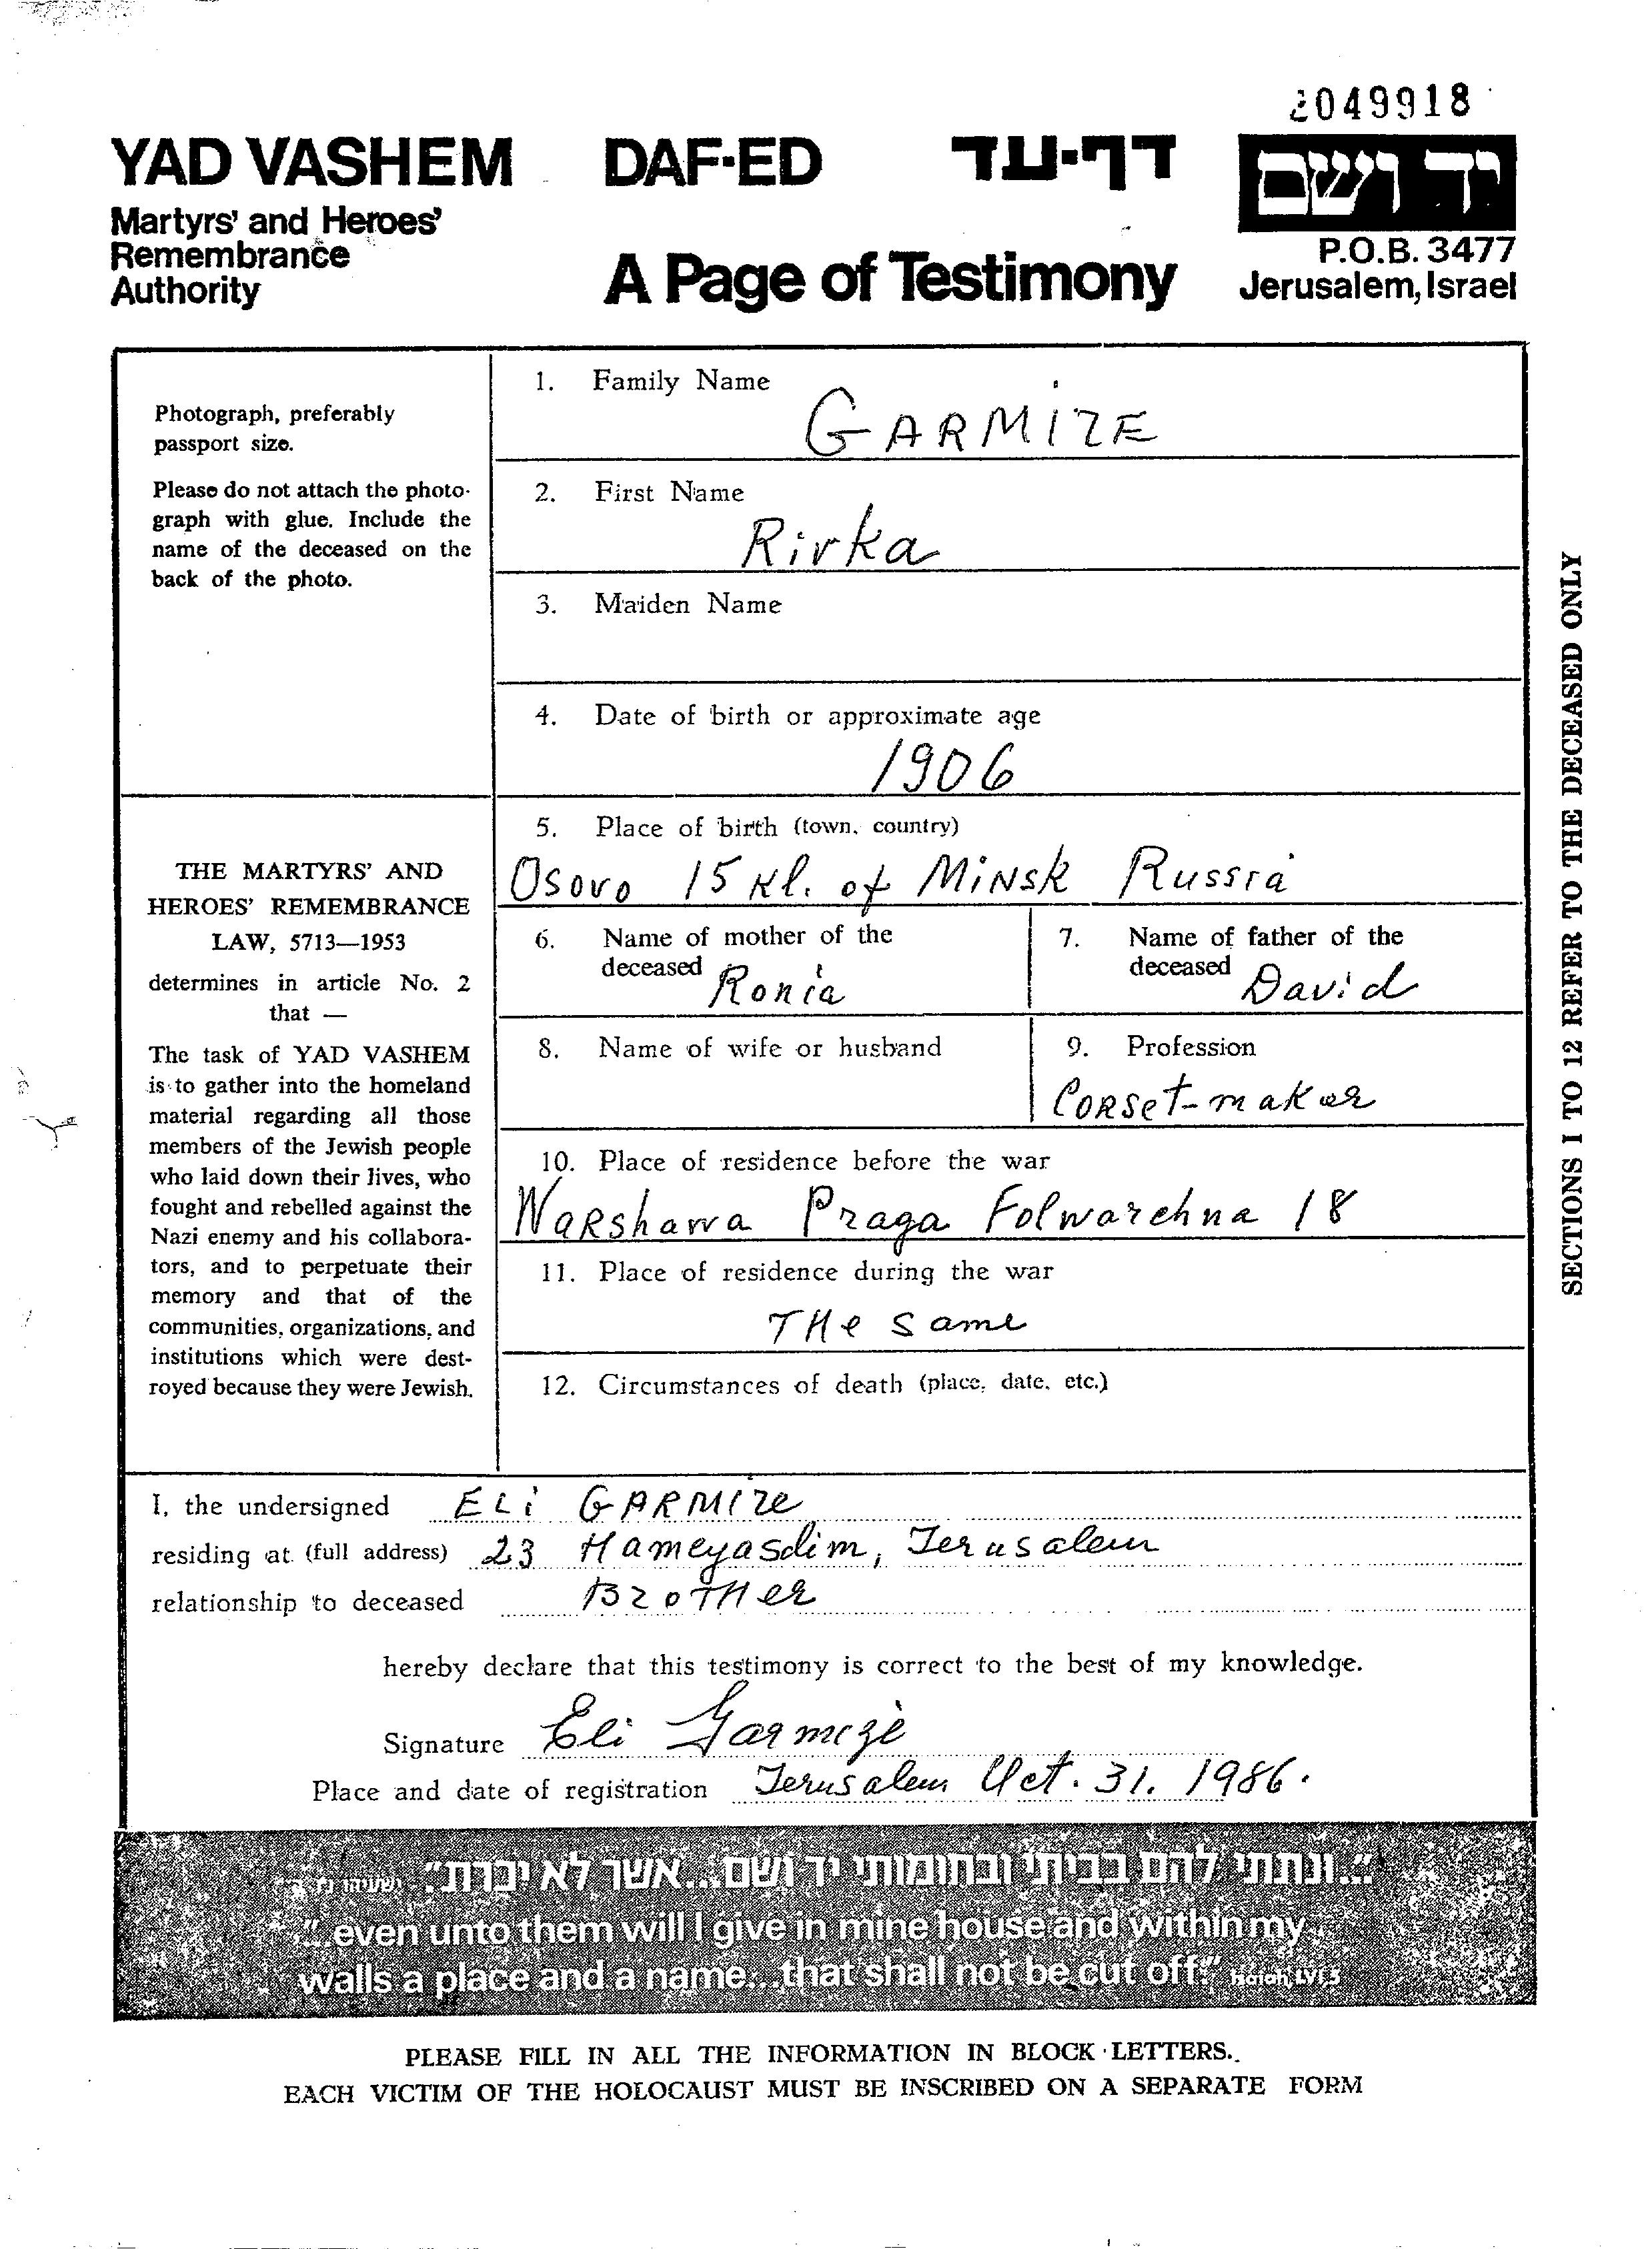 2049918
YAD VASHEM DAF-ED דף-עד יד ושם
Martyrs' and Heroes'
Remembrance
Authority
A Page of Testimony
P.O.B. 3477
Jerusalem, Israel
Photograph, preferably
passport size.
Please do not attach the photo-
graph with glue. Include the
name of the deceased on the
back of the photo.
THE MARTYRS' AND
HEROES' REMEMBRANCE
LAW, 5713—1953
determines in article No. 2
that —
The task of YAD VASHEM
is to gather into the homeland
material regarding all those
members of the Jewish people
who laid down their lives, who
fought and rebelled against the
Nazi enemy and his collabora-
tors, and to perpetuate their
memory and that of the
communities, organizations, and
institutions which were dest-
royed because they were Jewish.
1. Family Name
GARMIZE
2. First Name
Rivka
3. Maiden Name
4. Date of birth or approximate age
1906
5. Place of birth (town, country)
Osovo 15 Kl. of Minsk Russia
6. Name of mother of the
deceased Ronia
7. Name of father of the
deceased David
8. Name of wife or husband
9. Profession
Corset-maker
10. Place of residence before the war
Warshawa Praga Folwarchna 18
11. Place of residence during the war
THe same
12. Circumstances of death (place, date, etc.)
SECTIONS 1 TO 12 REFER TO THE DECEASED ONLY
I, the undersigned ELi GARMIZe
residing at (full address) 23 Hameyasdim, Jerusalem
relationship to deceased BroTHer
hereby declare that this testimony is correct to the best of my knowledge.
Signature Eli Garmize
Place and date of registration Jerusalem Oct. 31. 1986.
"...ונתתי להם בביתי ובחומותי יד ושם...אשר לא יכרת." ישעיהו נו ה
"...even unto them will I give in mine house and within my
walls a place and a name...that shall not be cut off." Isaiah, LVI, 5
PLEASE FILL IN ALL THE INFORMATION IN BLOCK LETTERS.
EACH VICTIM OF THE HOLOCAUST MUST BE INSCRIBED ON A SEPARATE FORM